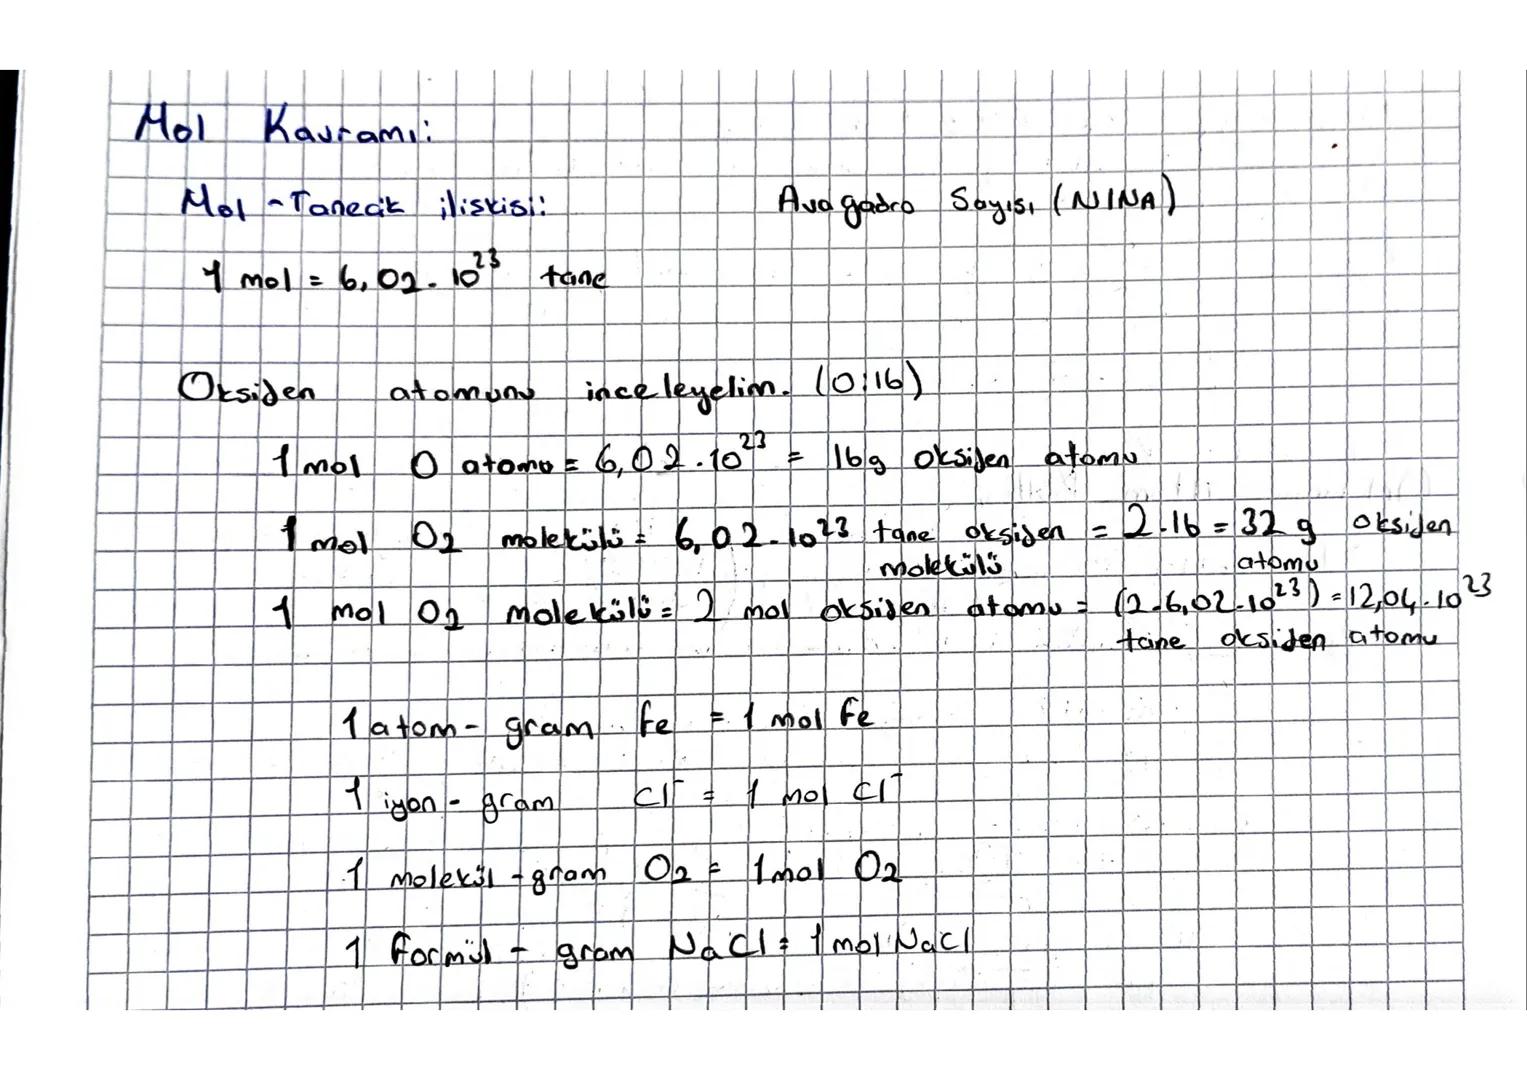 Mol Kavramı:
Mol - Tanecik ilişkisi: Avagadro Sayısı (N|NA)
1 mol = 6,02.10²³ tane
Oksijen atomunu inceleyelim. (O:16)
1 mol O atomu = 6,02.10²³ = 16g oksijen atomu
1 mol O2 molekülü = 6,02.10²³ tane oksijen = 2.16 = 32 g oksijen
molekülü atomu
1 mol O2 molekülü = 2 mol oksijen atomu = (2.6,02.10²³) = 12,04.10²³
tane oksijen atomu
1 atom - gram Fe = 1 mol Fe
1 iyon - gram Cl⁻ = 1 mol Cl⁻
1 molekül - gram O2 = 1 mol O2
1 formül - gram NaCl = 1 mol NaCl